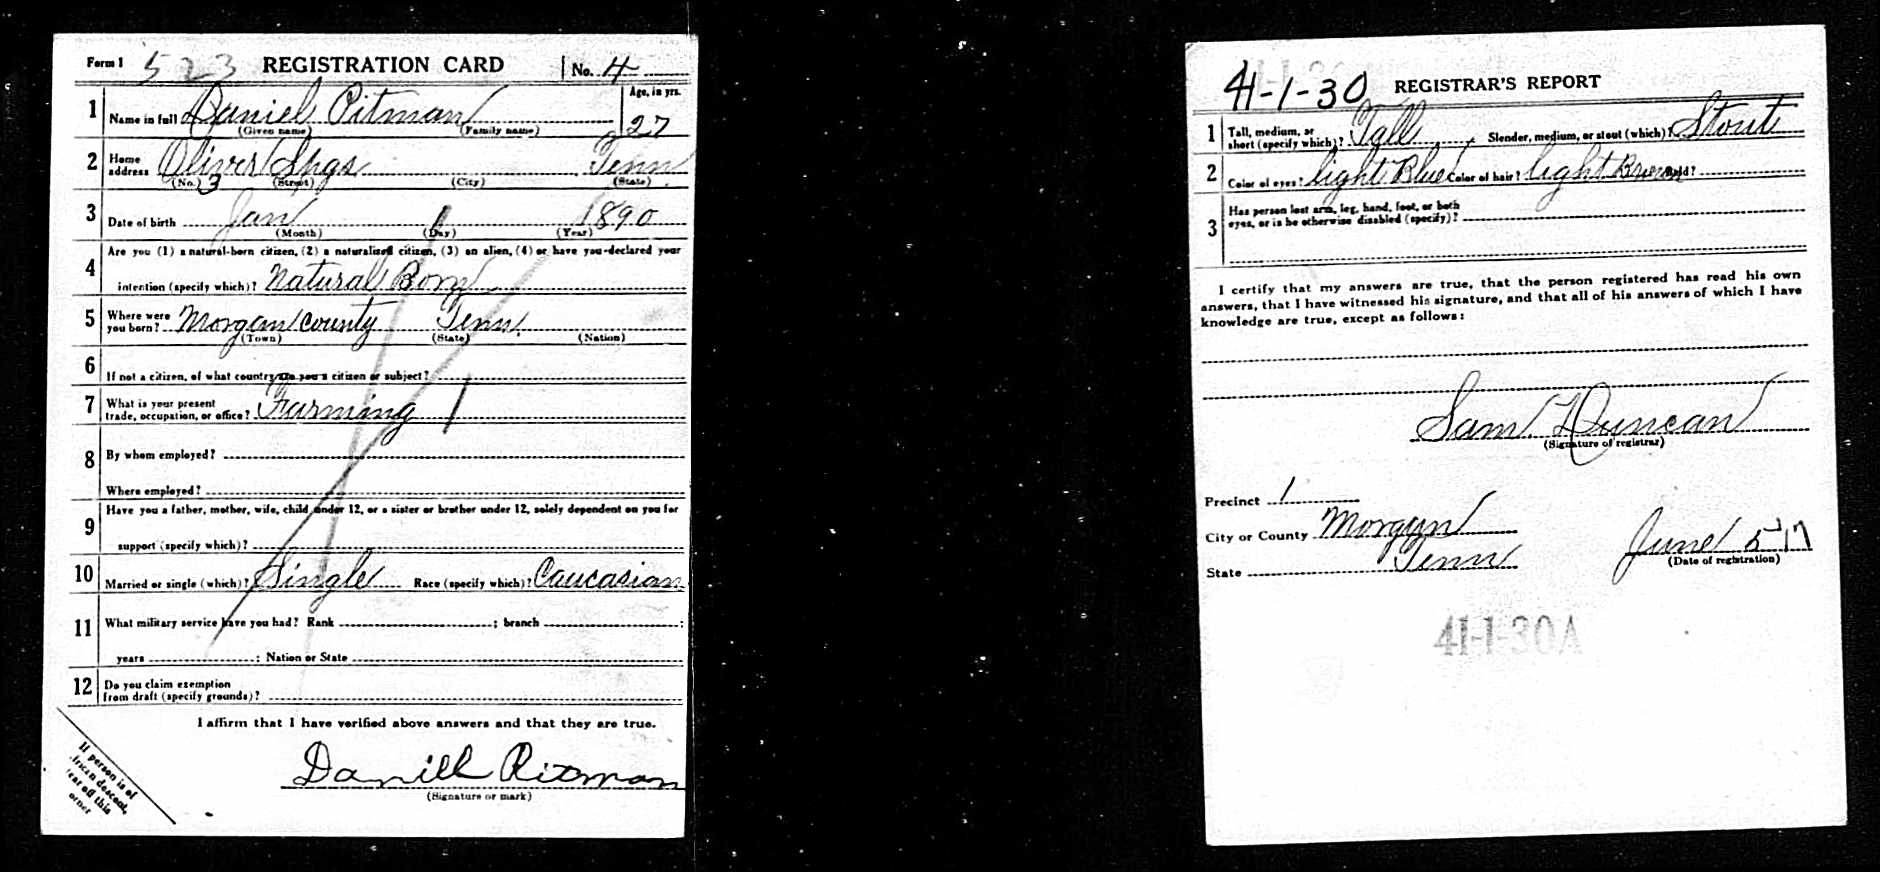 Form 1 523 REGISTRATION CARD No. 4
1 Name in full Daniel Pitman Age, in yrs. 27
(Given name) (Family name)
2 Home address Oliver Spgs Tenn
(No.) 3 (Street) (City) (State)
3 Date of birth Jan 1 1890
(Month) (Day) (Year)
4 Are you (1) a natural-born citizen, (2) a naturalized citizen, (3) an alien, (4) or have you declared your
intention (specify which)? Natural Born
5 Where were you born? Morgan County Tenn.
(Town) (State) (Nation)
6 If not a citizen, of what country are you a citizen or subject?
7 What is your present trade, occupation, or office? Farming
8 By whom employed?
Where employed?
9 Have you a father, mother, wife, child under 12, or a sister or brother under 12, solely dependent on you for
support (specify which)?
10 Married or single (which)? Single Race (specify which)? Caucasian
11 What military service have you had? Rank ; branch ;
years ; Nation or State
12 Do you claim exemption from draft (specify grounds)?
I affirm that I have verified above answers and that they are true.
Daniell Pitman
(Signature or mark)
If person is of
African descent,
tear off this
corner
41-1-30 REGISTRAR'S REPORT
1 Tall, medium, or short (specify which)? Tall Slender, medium, or stout (which)? Stout
2 Color of eyes? light Blue Color of hair? light Brown Bald?
3 Has person lost arm, leg, hand, foot, or both
eyes, or is he otherwise disabled (specify)?
I certify that my answers are true, that the person registered has read his own
answers, that I have witnessed his signature, and that all of his answers of which I have
knowledge are true, except as follows:
Sam Duncan
(Signature of registrar)
Precinct 1
City or County Morgan
State Tenn
June 5-17
(Date of registration)
41-1-30A